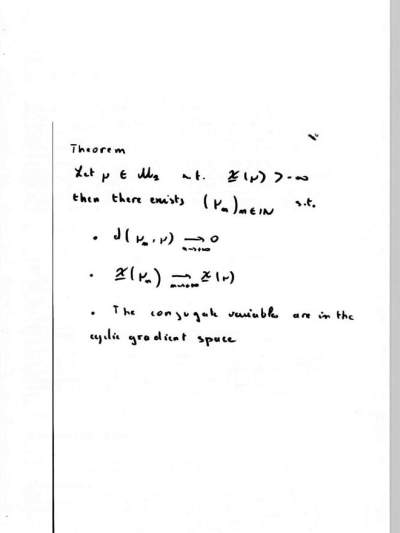 Theorem
Let μ ∈ M₂ s.t. χ(μ) > -∞
then there exists (μₙ)ₙ∈ℕ s.t.
• d(μₙ, μ) ⟶ 0 n→+∞
• χ(μₙ) ⟶ χ(μ) n→+∞
• The conjugate variables are in the
cyclic gradient space